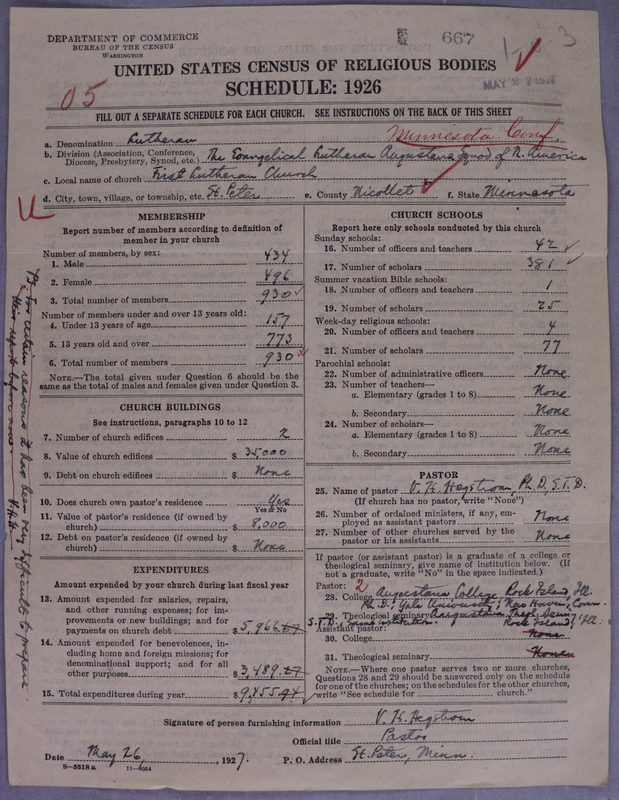 DEPARTMENT OF COMMERCE
BUREAU OF THE CENSUS
WASHINGTON
667
3
MAY
UNITED STATES CENSUS OF RELIGIOUS BODIES
SCHEDULE: 1926
05
FILL OUT A SEPARATE SCHEDULE FOR EACH CHURCH. SEE INSTRUCTIONS ON THE BACK OF THIS SHEET
Minnesota Conf.
a. Denomination Lutheran
b. Division (Association, Conference, Diocese, Presbytery, Synod, etc.) The Evangelical Lutheran Augustana Synod of N. America
c. Local name of church First Lutheran Church
d. City, town, village, or township, etc. St. Peter e. County Nicollet f. State Minnesota
MEMBERSHIP
Report number of members according to definition of
member in your church
Number of members, by sex:
1. Male 434
2. Female 496
3. Total number of members 930
Number of members under and over 13 years old:
4. Under 13 years of age 157
5. 13 years old and over 773
6. Total number of members 930
NOTE.—The total given under Question 6 should be
same as the total of males and females given under Question 3.
CHURCH BUILDINGS
See instructions, paragraphs 10 to 12
7. Number of church edifices 2
8. Value of church edifices $ 35,000
9. Debt on church edifices $ None
10. Does church own pastor's residence Yes
Yes or No
11. Value of pastor's residence (if owned by
church) $ 8,000
12. Debt on pastor's residence (if owned by
church) $ None
EXPENDITURES
Amount expended by your church during last fiscal year
13. Amount expended for salaries, repairs,
and other running expenses; for im-
provements or new buildings; and for
payments on church debt $ 5,966.67
14. Amount expended for benevolences, in-
cluding home and foreign missions; for
denominational support; and for all
other purposes $ 3,489.27
15. Total expenditures during year $ 9,455.94
CHURCH SCHOOLS
Report here only schools conducted by this church
Sunday schools:
16. Number of officers and teachers 42
17. Number of scholars 381
Summer vacation Bible schools:
18. Number of officers and teachers 1
19. Number of scholars 25
Week-day religious schools:
20. Number of officers and teachers 4
21. Number of scholars 77
Parochial schools:
22. Number of administrative officers None
23. Number of teachers—
a. Elementary (grades 1 to 8) None
b. Secondary None
24. Number of scholars—
a. Elementary (grades 1 to 8) None
b. Secondary None
PASTOR
25. Name of pastor V. K. Hegstrom, Ph.D, S.T.D.
(If church has no pastor, write "None")
26. Number of ordained ministers, if any, em-
ployed as assistant pastors None
27. Number of other churches served by the
pastor or his assistants None
If pastor (or assistant pastor) is a graduate of a college or
theological seminary, give name of institution below. (If
not a graduate, write "No" in the space indicated.)
Pastor: 2
28. College Augustana College Rock Island, Ill.
Ph.D; Yale University; New Haven, Conn.
29. Theological seminary Augustana Theol. Sem.
S.T.D., same institution Rock Island, Ill.
Assistant pastor:
30. College None
31. Theological seminary None
NOTE.—Where one pastor serves two or more churches,
Questions 28 and 29 should be answered only on the schedule
for one of the churches; on the schedules for the other churches,
write "See schedule for church."
Signature of person furnishing information V. K. Hegstrom
Official title Pastor
Date May 26, 1927. P. O. Address St. Peter, Minn.
8—5518 a 11—9064
For certain reasons it has been very difficult to prepare
this report before now.